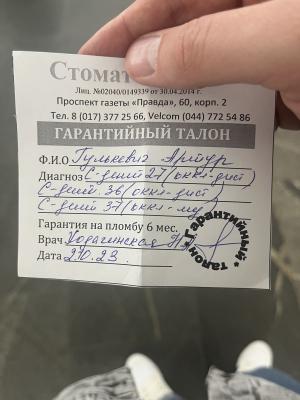 Стомат
Лиц. №02040/0149339 от 30.04.2014 г.
Проспект газеты «Правда», 60, корп. 2
Тел. 8 (017) 377 25 66, Velcom (044) 772 54 86
ГАРАНТИЙНЫЙ ТАЛОН
Ф.И.О Гулькевич Артур
Диагноз C-dent 27 (окл-дист)
C-dent 36 (окл-дист)
C-dent 37 (окл-мед)
Гарантия на пломбу 6 мес.
Врач Ходагинская
Дата 2.10.23.
Гарантийный талон